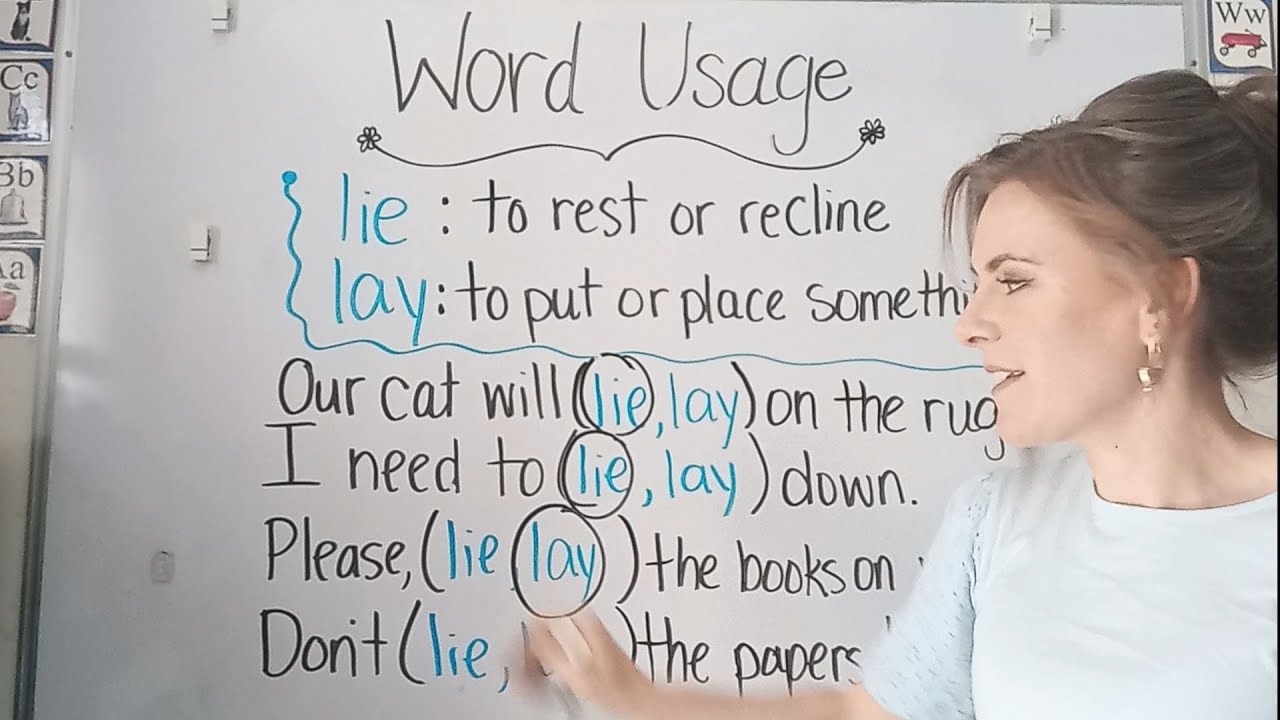 Word Usage
lie : to rest or recline
lay : to put or place
Our cat will (lie, lay) on the rug
I need to (lie, lay) down.
Please, (lie, lay) the books on
Don't (lie, ) the papers
Cc
Bb
Aa
Ww